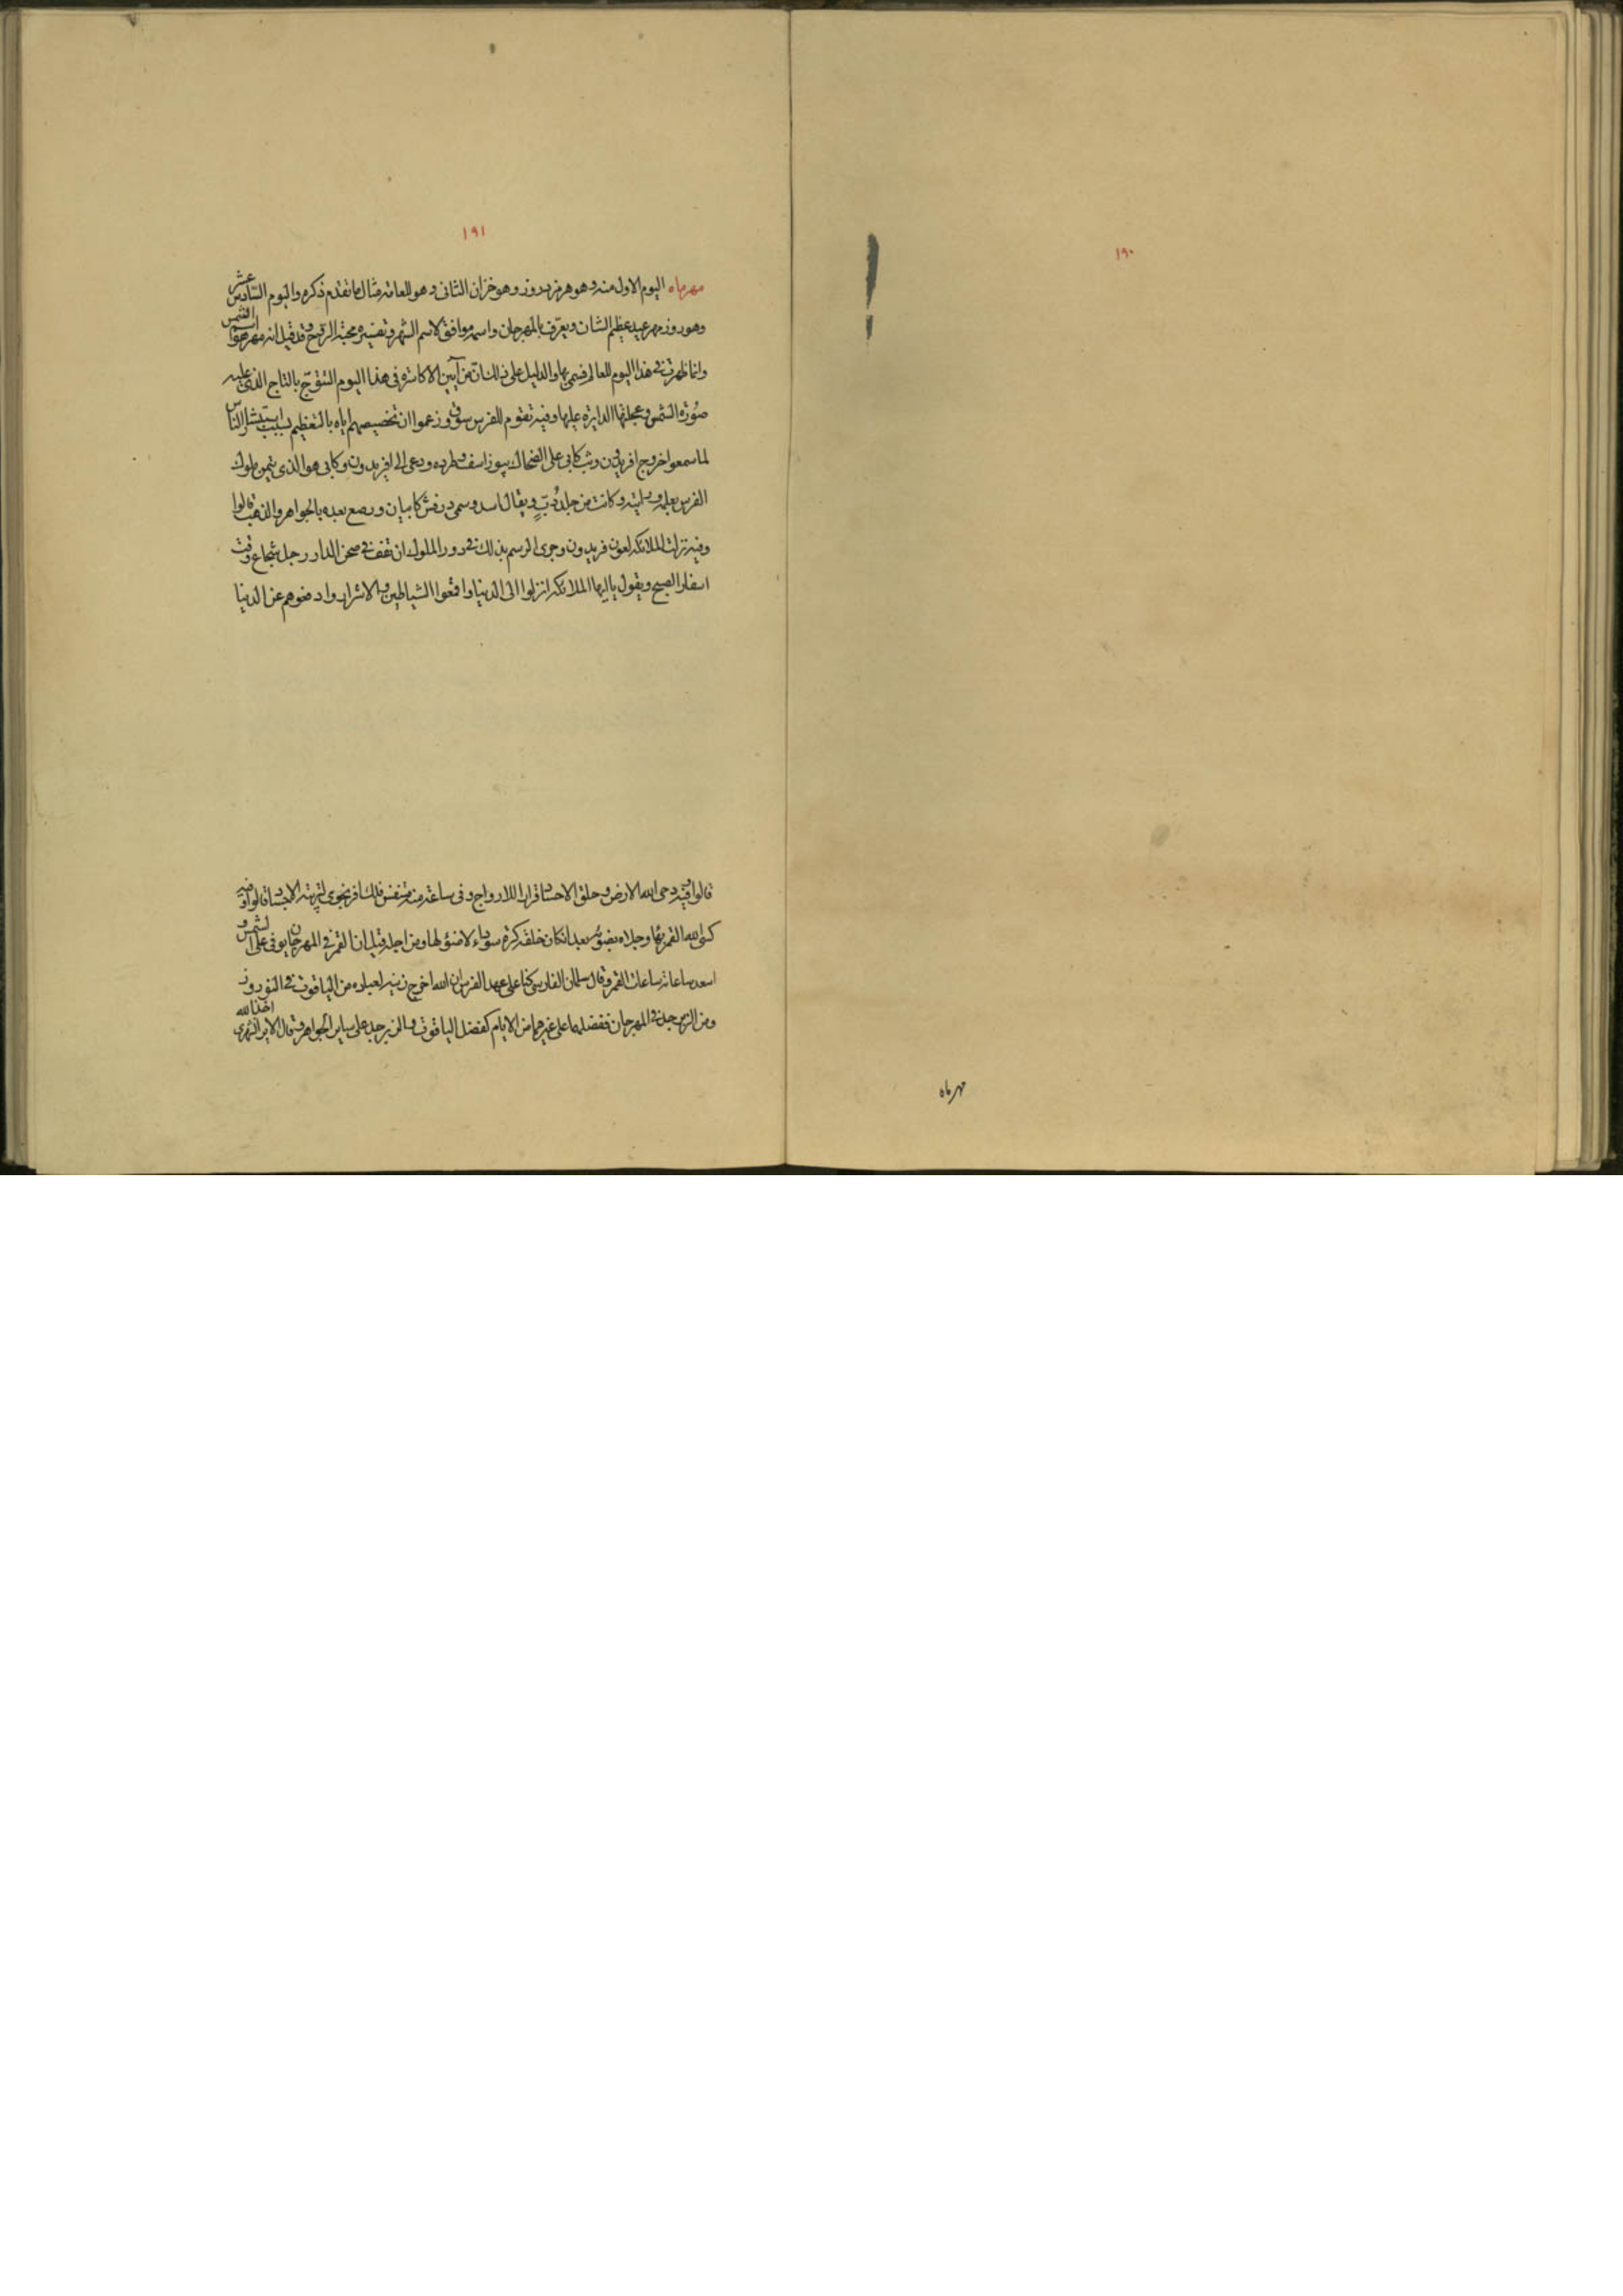 ١٩٠
مهرماه
١٩١
مهرماه اليوم الاول منه وهو هرمزد روز وهو خزان الثانى وهو للعامة مثال ما تقدم ذكره واليوم السادس عشر
وهو روز مهر عيد عظيم الشان ويعرف بالمهرجان واسمه موافق لاسم الشهر وتفسيره محبة الروح وقد قيل ان مهر هو اسم الشمس
وانما ظهرت فى هذا اليوم للعالم فسمى بها والدليل على ذلك ان من آيين الاكاسرة فى هذا اليوم التتوج بالتاج الذى عليه
صورة الشمس وعجلتها الدايرة عليها وفيه تقوم للفرس سوق وزعموا ان تخصيصهم اياه بالتعظيم بسبب استبشار الناس
لما سمعوا خروج افريدون وثب كابى على الضحاك بيوراسف وطرده ودعى الى افريدون وكابى هو الذى تيمن ملوك
الفرس بعلمه وكانت من جلد دب ويقال اسد وسمى درفش كابيان ورصع بعده بالجواهر والذهب قالوا
وفيه نزلت الملائكة لعون فريدون وجرى الرسم بذلك فى دور الملوك ان تقف فى صحن الدار رجل شجاع وقت
اسفار الصبح ويقول يا ايها الملائكة انزلوا الى الدنيا واقمعوا الشياطين والاشرار وادفعوهم عن الدنيا
قالوا وفيه دحى الله الارض وخلق الاجساد قرارا للارواح وفى ساعة منه تنفس فلك افرنجوى لتربية الاجساد قالوا وفيه
كسى الله القمر بهاء وجلاه بضوئه بعد ان كان خلقه كرة سوداء لا ضوء لها ومن اجله قيل ان القمر فى المهرجان يوفى على الشمس و
اسعد ساعاته ساعات القمر وقال سلمان الفارسى كنا على عهد الفرس ان الله اخرج زينة لعباده من الياقوت فى النوروز
ومن الزبرجد فى المهرجان ففضلهما على غيرهما من الايام كفضل الياقوت والزبرجد على ساير الجواهر وقال الايرانشهرى اخذ الله